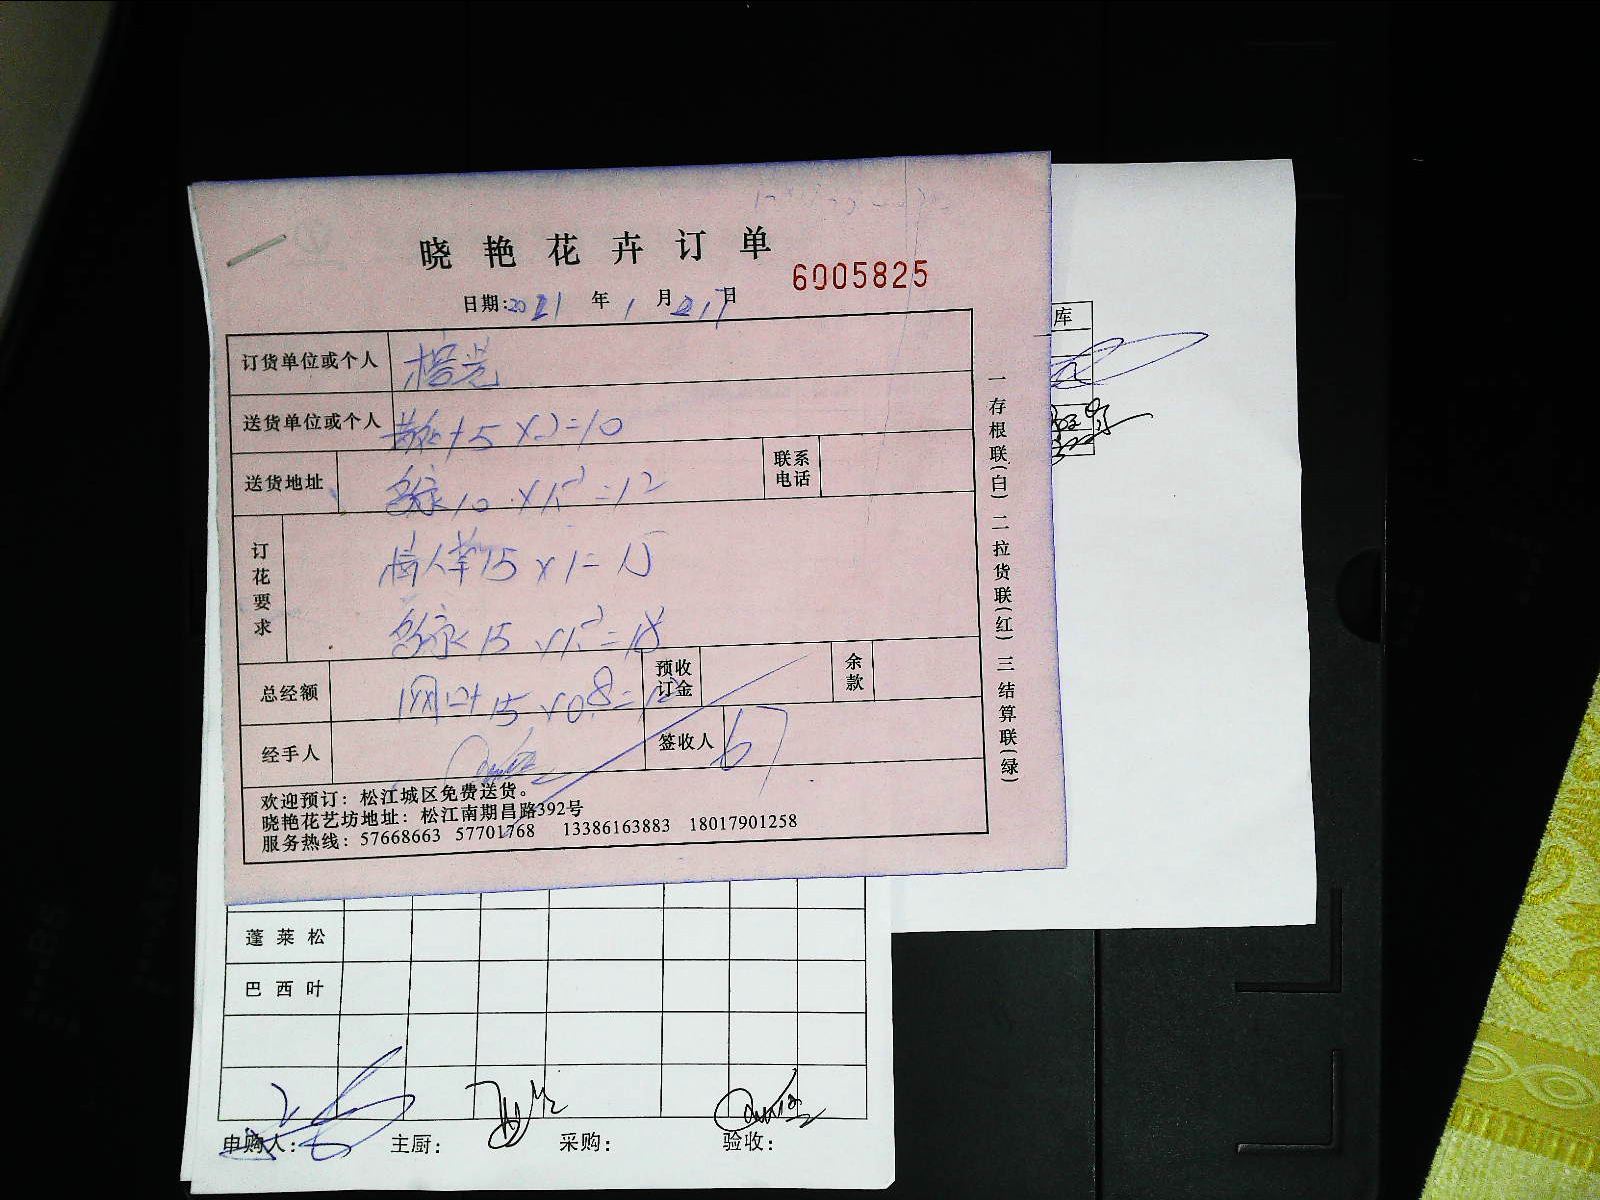 晓艳花卉订单
6005825
日期:2021年1月217日
订货单位或个人
送货单位或个人 +5×2=10
送货地址 10×1.2=12 联系电话
订花要求 情人草15×1=15
15×1.2=18
总经额 15×0.8=12 预收订金 余款
经手人 签收人 67
欢迎预订：松江城区免费送货。
晓艳花艺坊地址：松江南期昌路392号
服务热线：57668663 57701768 13386163883 18017901258
一存根联(白) 二拉货联(红) 三结算联(绿)
库
蓬莱松
巴西叶
申购人： 主厨： 采购： 验收：